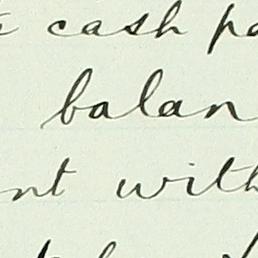 cash pa
balan
nt with